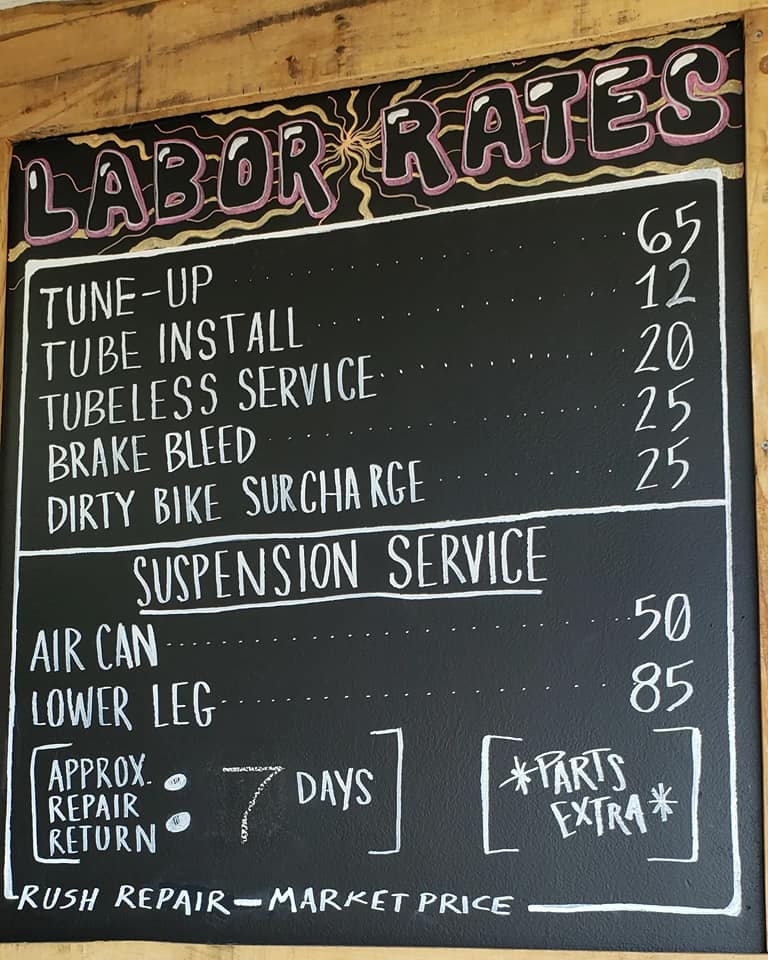 LABOR RATES
TUNE-UP 65
TUBE INSTALL 12
TUBELESS SERVICE 20
BRAKE BLEED 25
DIRTY BIKE SURCHARGE 25
SUSPENSION SERVICE
AIR CAN 50
LOWER LEG 85
APPROX.
REPAIR
RETURN : 7 DAYS
*PARTS
EXTRA*
RUSH REPAIR — MARKET PRICE